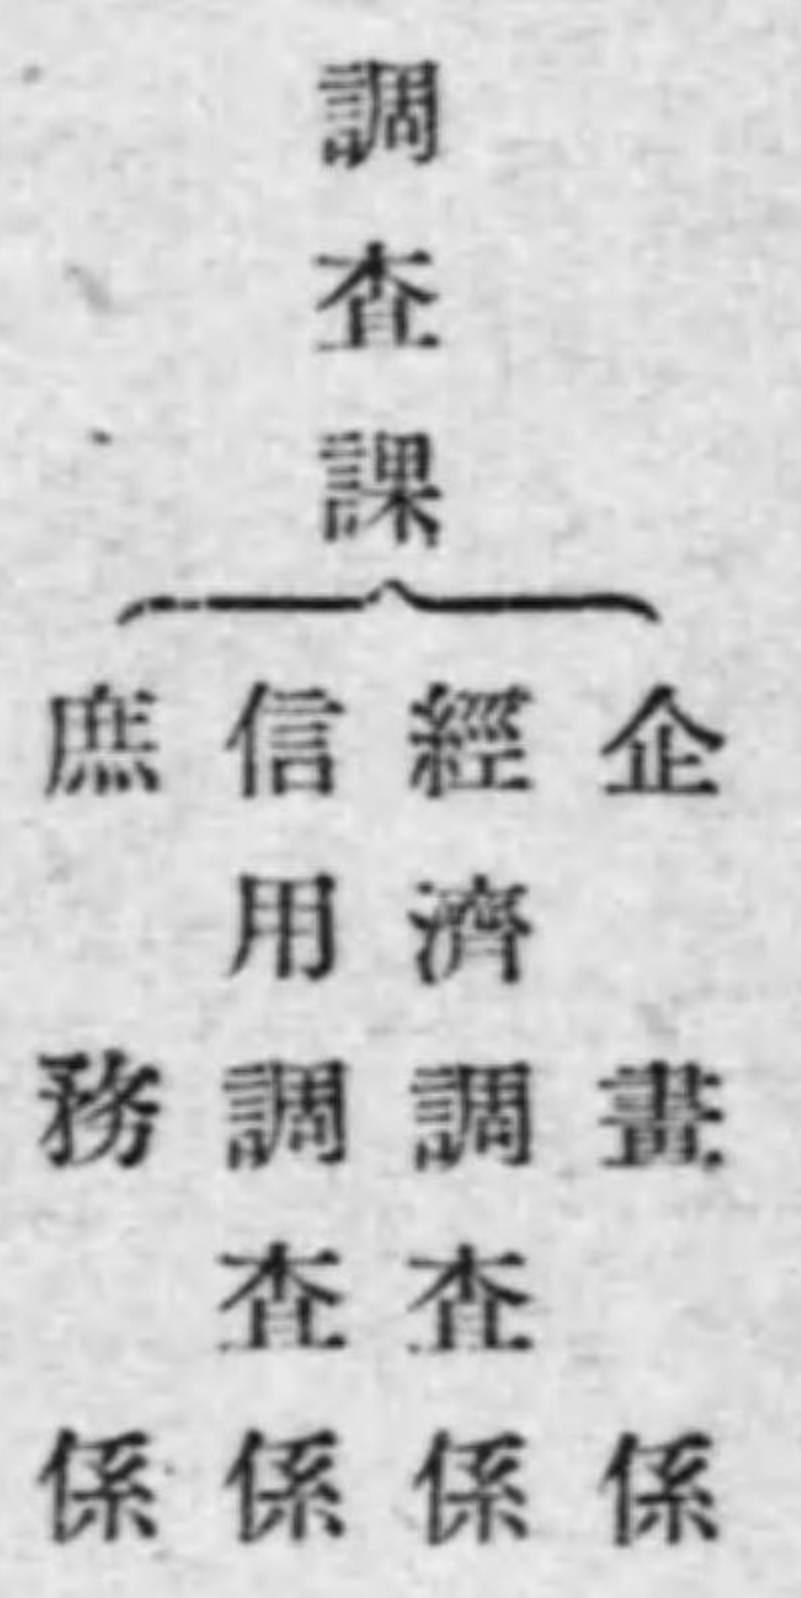 調査課
企畫係
經濟調査係
信用調査係
庶務係